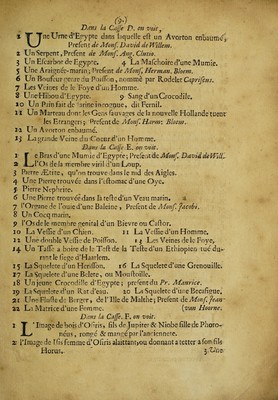 (9.)
Dans la Casse D. on voit,
1 Une Urne d'Egypte dans laquelle est un Averton enbaumé,
Present de Mons. David de Willem.
2 Un Serpent, Present de Mons. Aug. Clutie.
3 Un Escarbot de Egypte. 4 La Maschoire d'une Mumie.
5 Une Araignée-marin; Present de Mons. Herman. Bloem.
6 Un Boufeur genre du Poisson, nommé par Rodelet Capriscus.
7 Les Veines de le Foye d'un Homme.
8 Une Hibou d'Egypte. 9 Sang d'un Crocodile.
10 Un Pain fait de farine inconue, du Fernil.
11 Un Marteau dont les Gens sauvages de la nouvelle Hollande tuent
les Etrangers; Present de Mons. Harm: Bloem.
12 Un Averton enbaumé.
13 La grande Veine du Coeur d'un Homme.
Dans la Casse E. on voit.
1 Le Bras d'une Mumie d'Egypte; Present de Mons. David de Will.
2 L'Os de la membre viril d'un Loup.
3 Pierre Ætite, qu'on trouve dans le nid des Aigles.
4 Une Pierre trouvée dans l'estomac d'une Oye.
5 Pierre Nephrite.
6 Une Pierre trouvée dans la teste d'un Veau marin.
7 l'Organe de l'ouie d'une Baleine; Present de Mons. Jacobi.
8 Un Cocq marin.
9 l'Os de le membre genital d'un Bievre ou Castor.
10 La Vessie d'un Chien. 11 La Vessie d'un Homme.
12 Une double Vessie de Poisson. 13 Les Veines de le Foye.
14 Un Tasse à boire de le Test de la Teste d'un Ethiopien tué du-
rant le siege d'Haarlem.
15 La Squelete d'un Herisson. 16 La Squelete d'une Grenouille.
17 La Squelete d'une Belete, ou Moustoille.
18 Un jeune Crocodille d'Egypte; present du Pr. Maurice.
19 La Squelete d'un Rat d'eau. 20 La Squelete d'une Becasigue,
21 Une Flusté de Berger, de l'Ille de Malthe; Present de Mons. Jean
22 La Matrice d'une Femme. (van Hoorne.
Dans la Casse. F. on voit.
1 L'Image de bois d'Osiris, fils de Jupiter & Niobe fille de Phoro-
néus, rongé & mangé par l'ancienneté.
2 l'Image de Isis femme d'Osiris alaittant, ou donnant a tetter a son fils
Horus. 3. Une